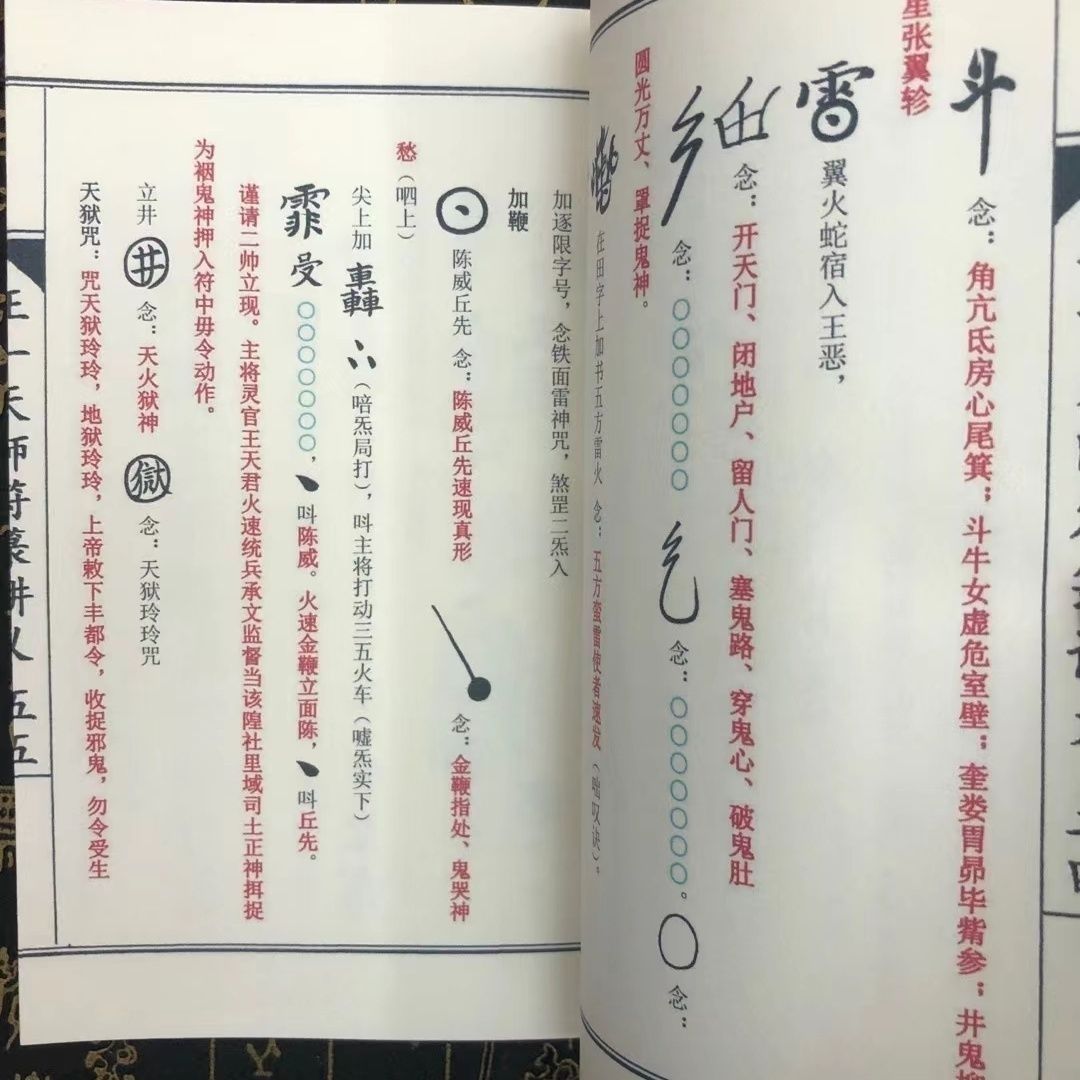 斗 念：角亢氐房心尾箕；斗牛女虚危室壁；奎娄胃昴毕觜参；井鬼柳
星张翼轸
雷 翼火蛇宿入王恶，
念：开天门、闭地户、留人门、塞鬼路、穿鬼心、破鬼肚
念：○○○○○○○ 念：○○○○○○○。○ 念：
圆光万丈、罩捉鬼神。
在田字上加书五方雷火 念：五方蛮雷使者速发
加逐限字号，念铁面雷神咒，煞罡二炁入
加鞭
陈威丘先 念：陈威丘先速现真形 念：金鞭指处、鬼哭神
愁（呬上）
尖上加 轟（唵炁局打），呌主将打动三五火车（嘘炁实下）
霏 受 ○○○○○○○，丶呌陈威。火速金鞭立面陈，丶呌丘先。
谨请二帅立现。主将灵官王天君火速统兵承文监督当该隍社里域司土正神挕捉
为裀鬼神押入符中毋令动作。
立井 井 念：天火狱神 獄 念：天狱玲玲咒
天狱咒：咒天狱玲玲，地狱玲玲，上帝敕下丰都令，收捉邪鬼，勿令受生